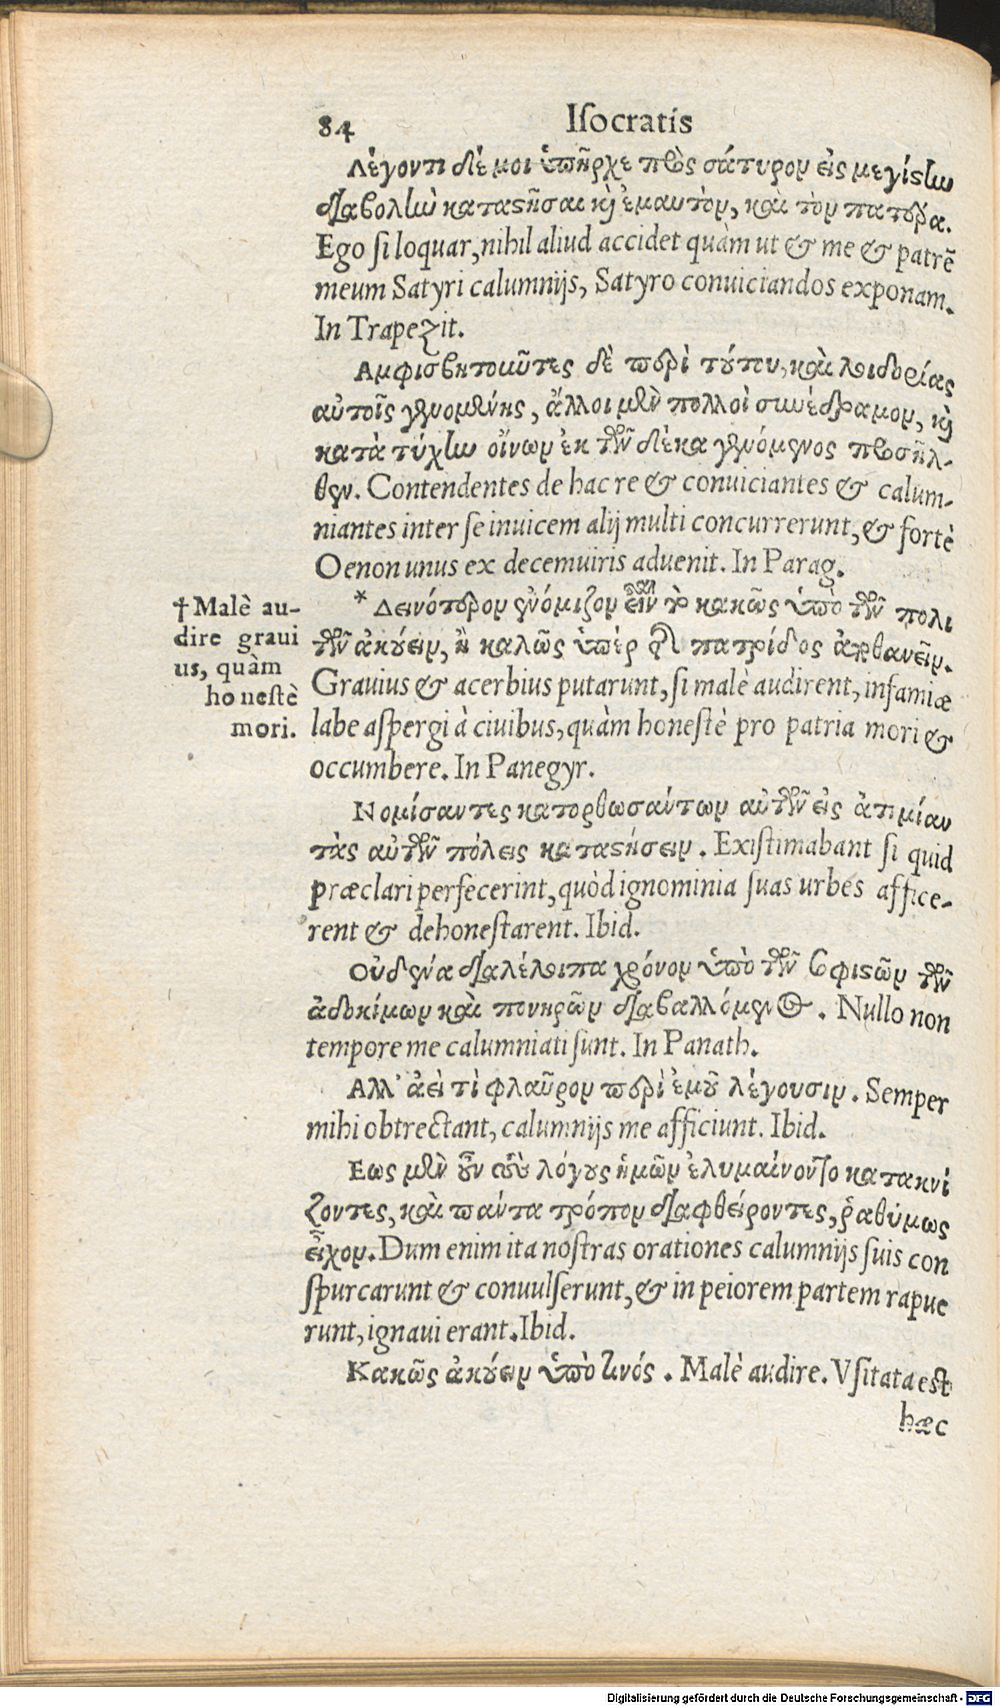 84 Iſocratis
Λέγοντι δέ μοι ὑπῆρχε πρὸς σάτυρον εἰς μεγίστην
διαβολὴν καταστῆσαι κὶ ἐμαυτὸν, καὶ τὸν πατέρα.
Ego ſi loquar, nihil aliud accidet quàm ut & me & patrē
meum Satyri calumnijs, Satyro conuiciandos exponam.
In Trapezit.
Αμφισβητοῦντες δὲ περὶ τούτου, καὶ λοιδορίας
αὐτοῖς γενομένης, ἄλλοι μὲν πολλοὶ συνέδραμον, κὶ
κατὰ τύχην οἴνων ἐκ τῶν δέκα γενόμενος προσῆλ-
θεν. Contendentes de hac re & conuiciantes & calum-
niantes inter ſe inuicem alij multi concurrerunt, & fortè
Oenon unus ex decemuiris aduenit. In Parag.
* Δεινότερον ἐνόμιζον εἶναι τὸ κακῶς ὑπὸ τῶν πολι
τῶν ἀκούειν, ἢ καλῶς ὑπὲρ τῆς πατρίδος ἀποθανεῖν.
† Malè au-
dire graui
us, quàm
honeſtè
mori.
Grauius & acerbius putarunt, ſi malè audirent, infamiæ
labe aſpergi à ciuibus, quàm honeſtè pro patria mori &
occumbere. In Panegyr.
Νομίσαντες κατορθωσάντων αὐτῶν εἰς ἀτιμίαν
τὰς αὑτῶν πόλεις καταστήσειν. Exiſtimabant ſi quid
præclari perfecerint, quòd ignominia ſuas urbes affice-
rent & dehoneſtarent. Ibid.
Οὐδένα διαλέλοιπα χρόνον ὑπὸ τῶν σοφιστῶν τῶν
ἀδοκίμων καὶ πονηρῶν διαβαλλόμενος. Nullo non
tempore me calumniati ſunt. In Panath.
Αλλ᾽ ἀεὶ τὶ φλαῦρον περὶ ἐμοῦ λέγουσιν. Semper
mihi obtrectant, calumnijs me afficiunt. Ibid.
Εως μὲν οὖν τοὺς λόγους ἡμῶν ἐλυμαίνοντο κατακνί
ζοντες, καὶ πάντα τρόπον διαφθείροντες, ῥαθύμως
εἶχον. Dum enim ita noſtras orationes calumnijs ſuis con
ſpurcarunt & conuulſerunt, & in peiorem partem rapue
runt, ignaui erant. Ibid.
Κακῶς ἀκούειν ὑπὸ τινός. Malè audire. Vſitata eſt
hæc
Digitalisierung gefördert durch die Deutsche Forschungsgemeinschaft - DFG